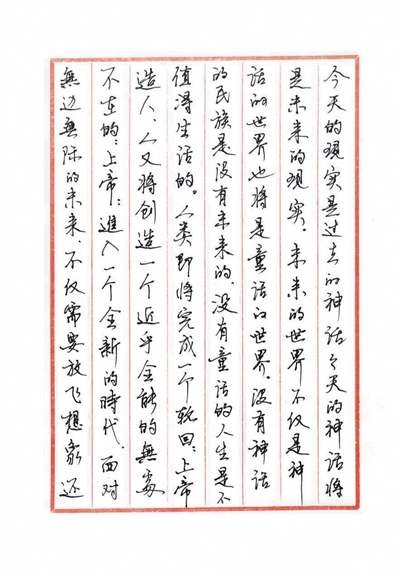 今天的现实是过去的神话今天的神话将
是未来的现实.未来的世界不仅是神
话的世界也将是童话的世界。没有神话
的民族是没有未来的,没有童话的人生是不
值得生活的。人类即将完成一个轮回:上帝
造人,人又将创造一个近乎全能的無处
不在的:上帝:進入一个全新的時代.面对
無边無际的未来、不仅需要放飞想象还